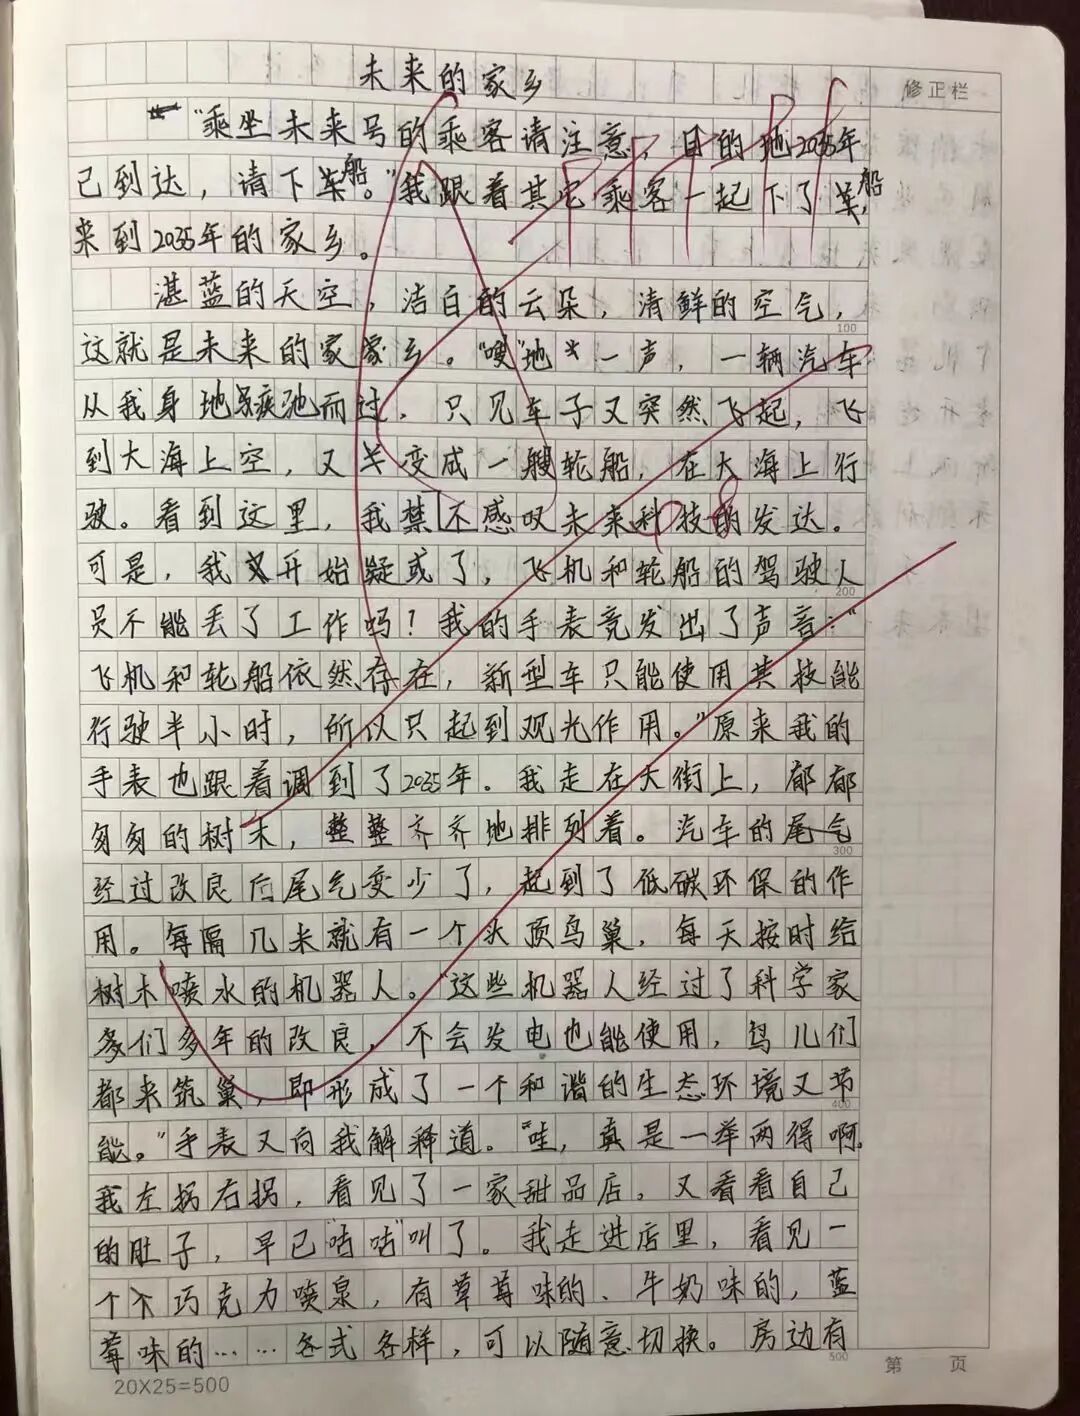 未来的家乡
修正栏
"乘坐未来号的乘客请注意,目的地2035年
已到达,请下船。"我跟着其它乘客一起下了船,
来到2035年的家乡。
湛蓝的天空,洁白的云朵,清鲜的空气,
100
这就是未来的家乡。"嗖"地一声,一辆汽车
从我身地疾驰而过,只见车子又突然飞起,飞
到大海上空,又变成一艘轮船,在大海上行
驶。看到这里,我禁不感叹未来科技的发达。
可是,我开始疑或了,飞机和轮船的驾驶人
200
员不能丢了工作吗?我的手表竟发出了声音:"
飞机和轮船依然存在,新型车只能使用其技能
行驶半小时,所以只起到观光作用。"原来我的
手表也跟着调到了2035年。我走在大街上,郁郁
匆匆的树木,整整齐齐地排列着。汽车的尾气
300
经过改良后尾气变少了,起到了低碳环保的作
用。每隔几米就有一个头顶鸟巢,每天按时给
树木喷水的机器人。"这些机器人经过了科学家
们多年的改良,不会发电也能使用,鸟儿们
都来筑巢,即形成了一个和谐的生态环境又节
400
能。"手表又向我解释道。"哇,真是一举两得啊。
我左拐右拐,看见了一家甜品店,又看看自己
的肚子,早已"咕咕"叫了。我走进店里,看见一
个巧克力喷泉,有草莓味的、牛奶味的,蓝
莓味的……各式各样,可以随意切换。房边有
500
第 页
20X25=500